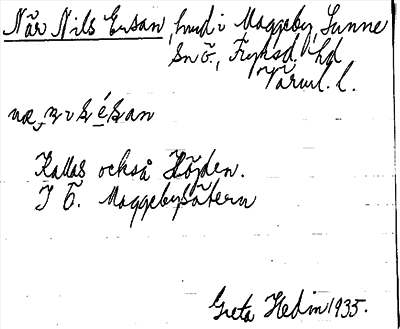 När Nils Ersan, hmd i Maggeby, Sunne
Sn Ö., Fryksd. hd
Värml. l.
Kallas också Höjden.
I Ö. Maggebysätern
Greta Hedin 1935.